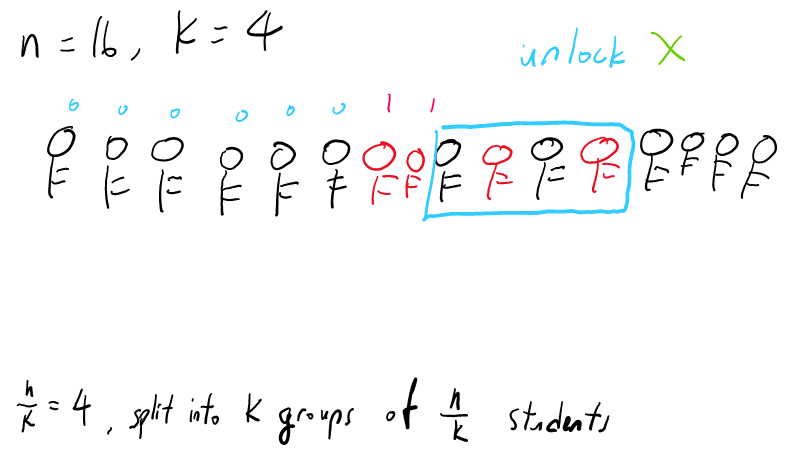 n = 16, k = 4
unlock X
0 0 0 0 0 0 1 1
n/k = 4, split into k groups of n/k students